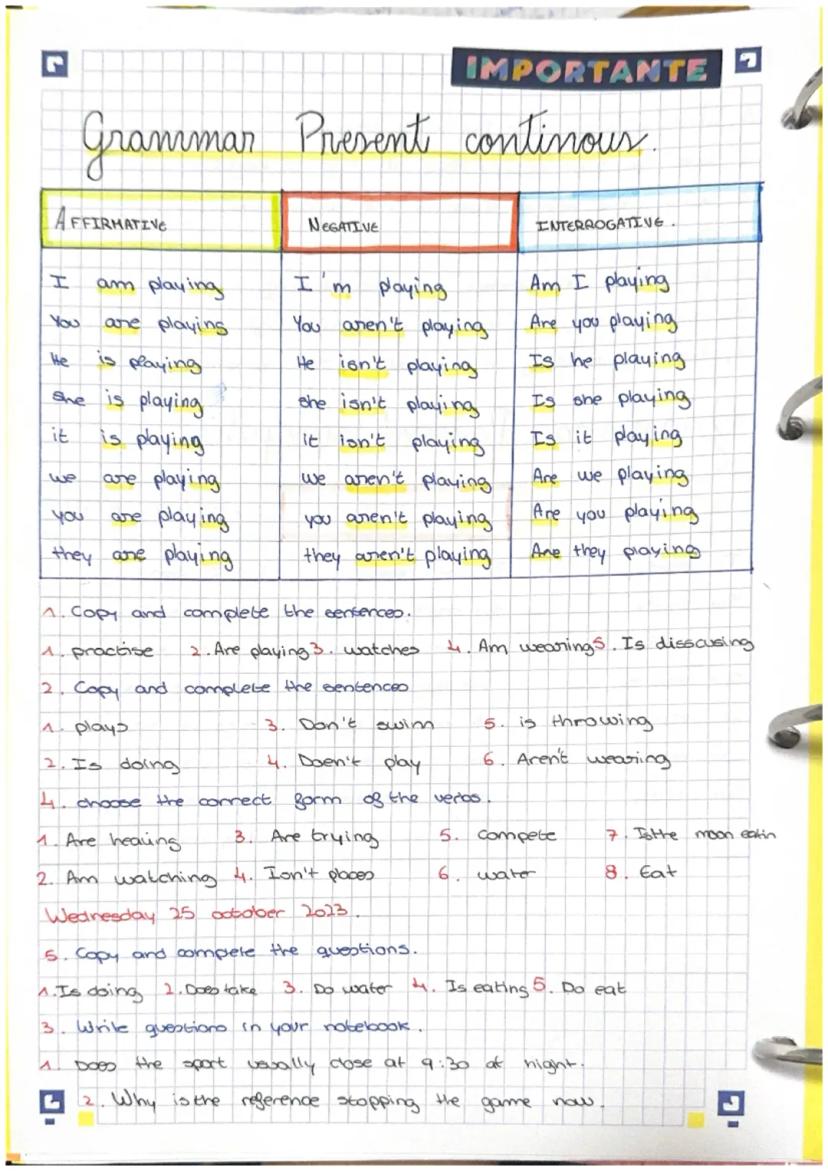 IMPORTANTE
Grammar Present continous.
AFFIRMATIVE NEGATIVE INTERROGATIVE.
I am playing I'm playing Am I playing
You are playing You aren't playing Are you playing
He is playing He isn't playing Is he playing
She is playing she isn't playing Is she playing
it is playing it isn't playing Is it playing
we are playing we aren't playing Are we playing
you are playing you aren't playing Are you playing
they are playing they aren't playing Are they playing
1. Copy and complete the sentences.
1. practise 2. Are playing 3. watches 4. Am wearing 5. Is disscusing
2. Copy and complete the sentences
1. plays 3. Don't swim 5. is throwing
2. Is doing 4. Doen't play 6. Aren't wearing
4. choose the correct form of the verbs.
1. Are heaving 3. Are trying 5. compete 7. Is the moon eatin
2. Am watching 4. Isn't places 6. water 8. Eat
Wednesday 25 october 2023.
5. Copy and complete the questions.
1. Is doing 2. Does take 3. Do water 4. Is eating 5. Do eat
3. Write questions in your notebook.
1. Does the sport usually close at 9:30 at night.
2. Why is the reference stopping the game now.